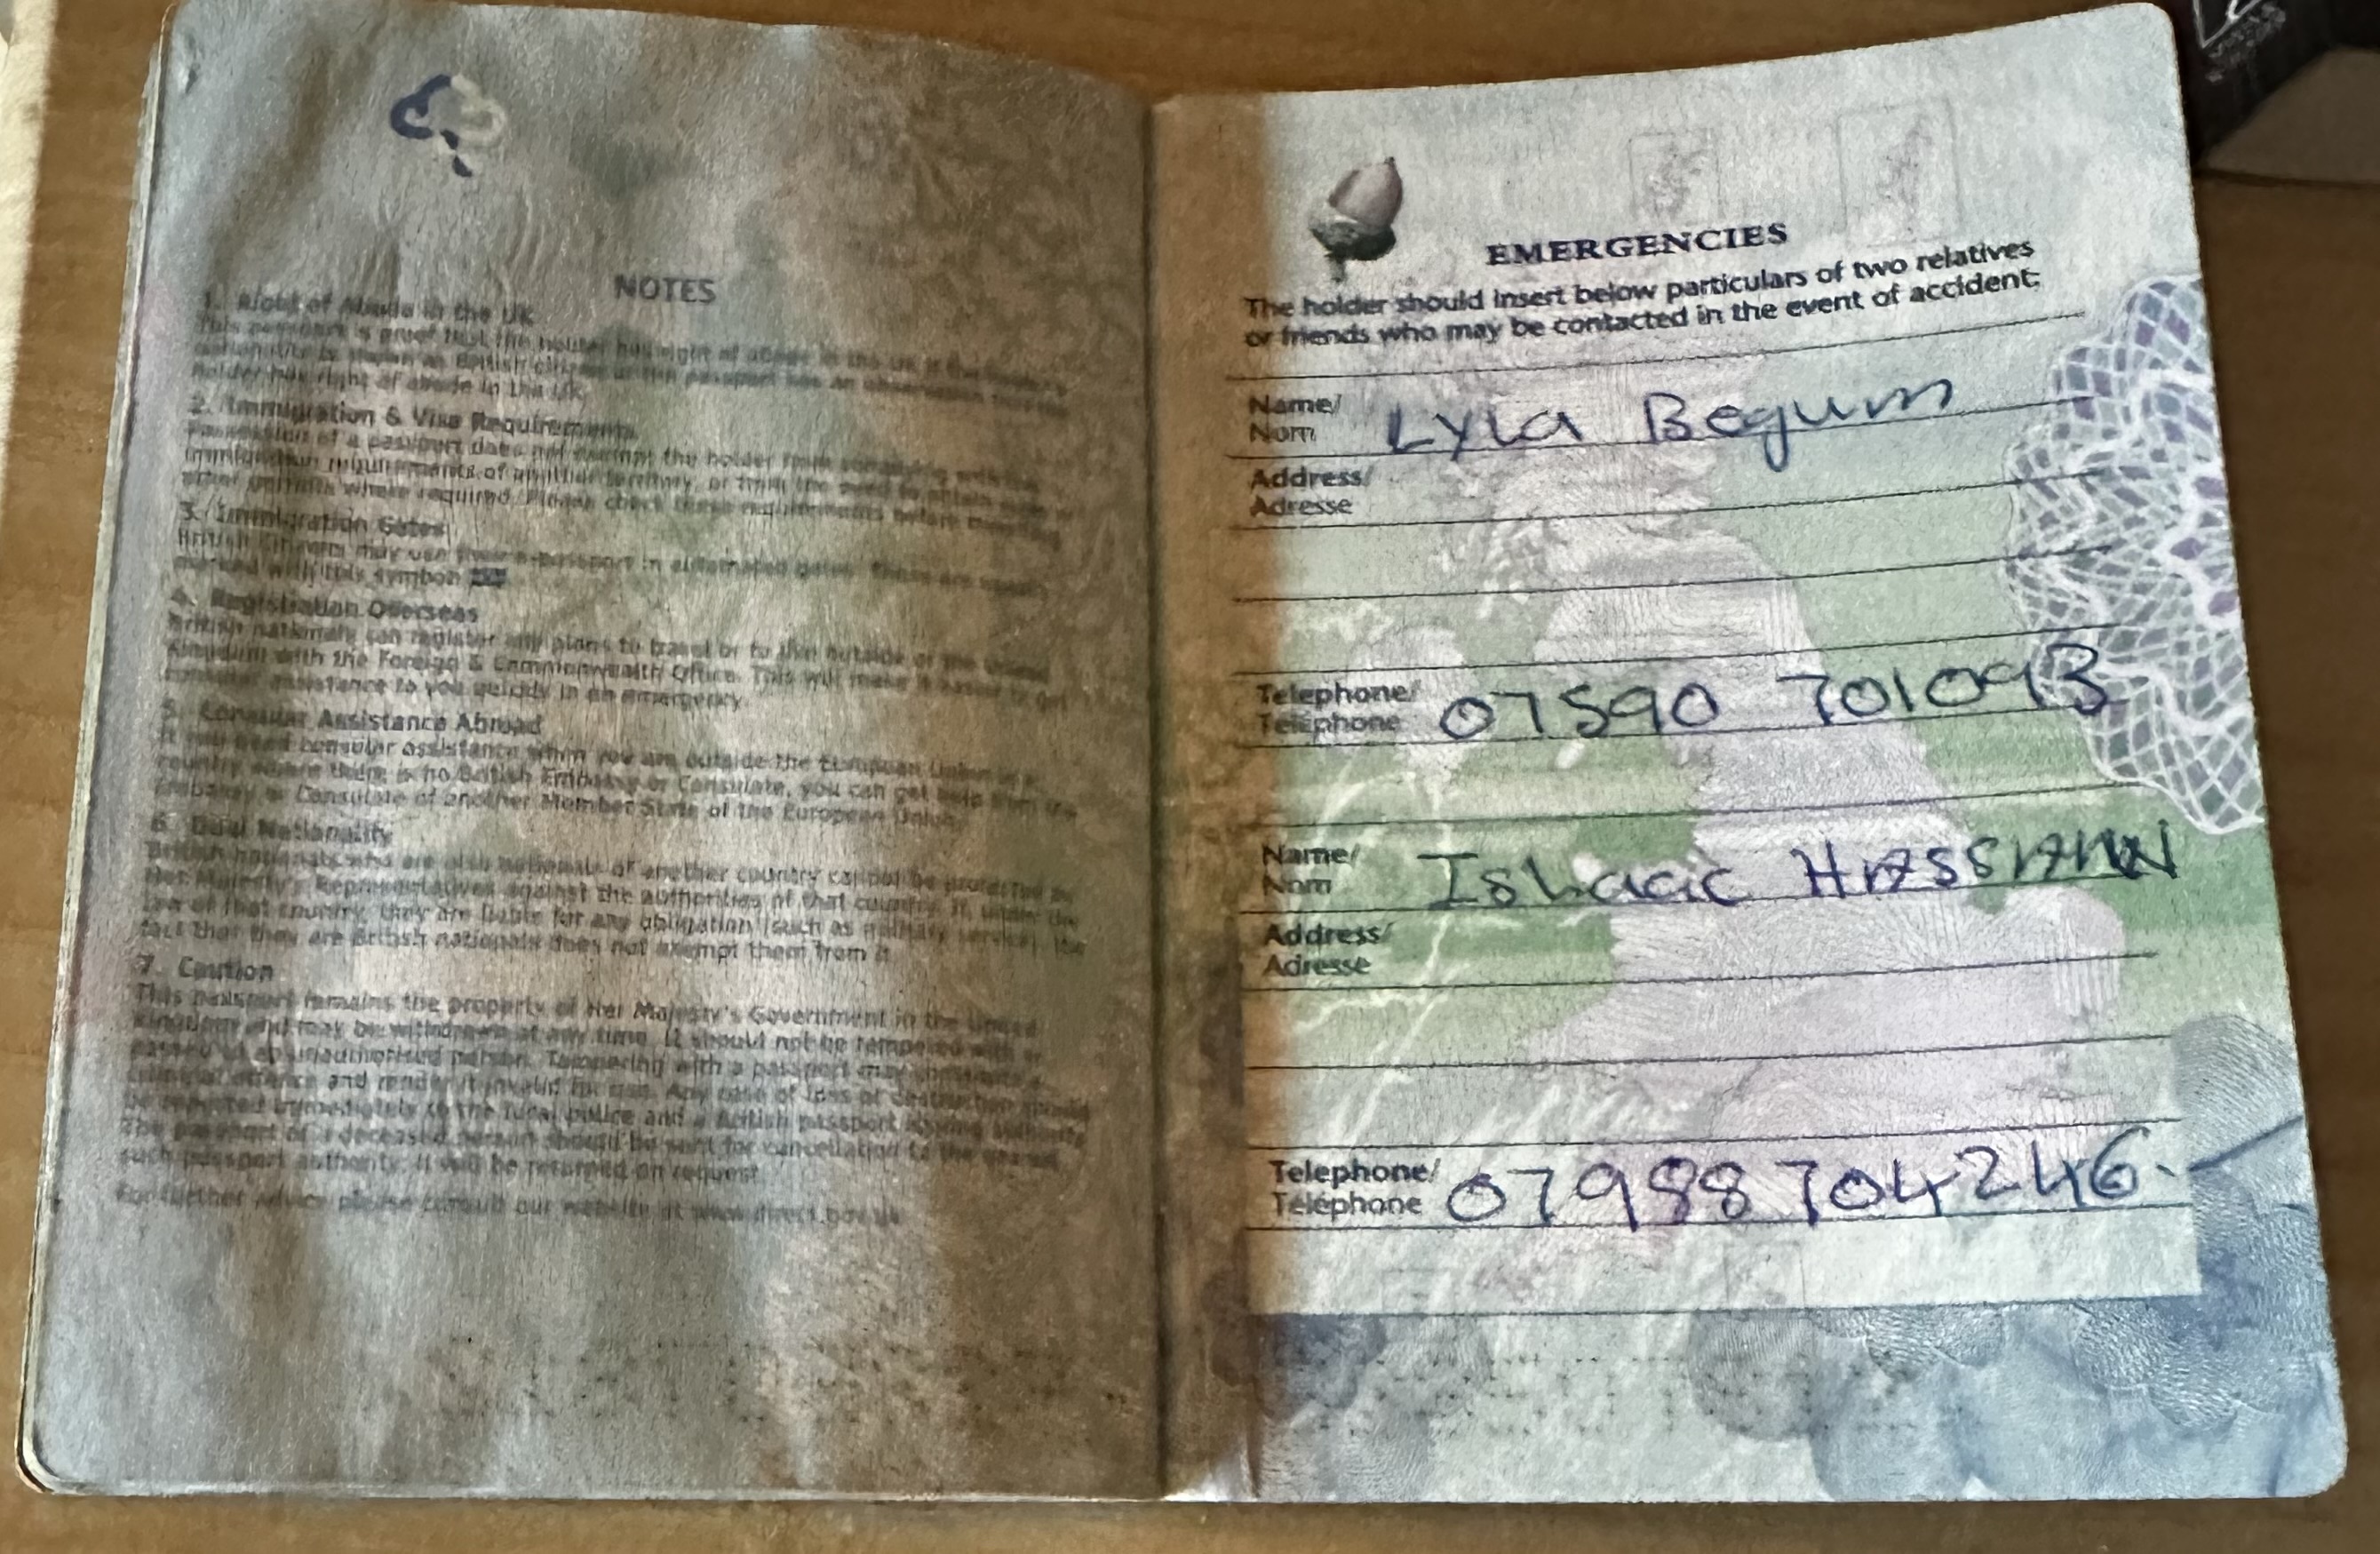 NOTES
1. Right of Abode in the UK
This passport is proof that the holder has right of abode in the UK if the
nationality is shown as British citizen or the passport has an observation that the
holder has right of abode in the UK.
2. Immigration & Visa Requirements
Possession of a passport does not exempt the holder from complying with the
immigration requirements of another territory, or from the need to obtain
permits where required. Please check these requirements before
3. Immigration Gates
British Citizens may use their e-passport in automated gates. These are
marked with this symbol
4. Registration Overseas
British nationals can register any plans to travel or to live outside of the United
Kingdom with the Foreign & Commonwealth Office. This will make it easier to get
consular assistance to you quickly in an emergency.
5. Consular Assistance Abroad
If you need consular assistance when you are outside the European Union in a
country where there is no British Embassy or Consulate, you can get help from the
Embassy or Consulate of another Member State of the European Union.
6. Dual Nationality
British nationals who are also nationals of another country cannot be protected by
Her Majesty's Representatives against the authorities of that country. If, under the
law of that country, they are liable for any obligation (such as military service), the
fact that they are British nationals does not exempt them from it.
7. Caution
This passport remains the property of Her Majesty's Government in the United
Kingdom and may be withdrawn at any time. It should not be tampered with or
passed to an unauthorised person. Tampering with a passport may
criminal offence and render it invalid for use. Any case of loss or destruction should
be reported immediately to the local police and a British passport issuing authority.
The passport of a deceased person should be sent for cancellation to the nearest
such passport authority; it will be returned on request.
For further advice please consult our website at www.direct.gov.uk
EMERGENCIES
The holder should insert below particulars of two relatives
or friends who may be contacted in the event of accident:
Name/ Lyla Begum
Nom
Address/
Adresse
Telephone/ 07590 701093
Téléphone
Name/ Ishaac
Nom
Address/
Adresse
Telephone/ 07988704246
Téléphone